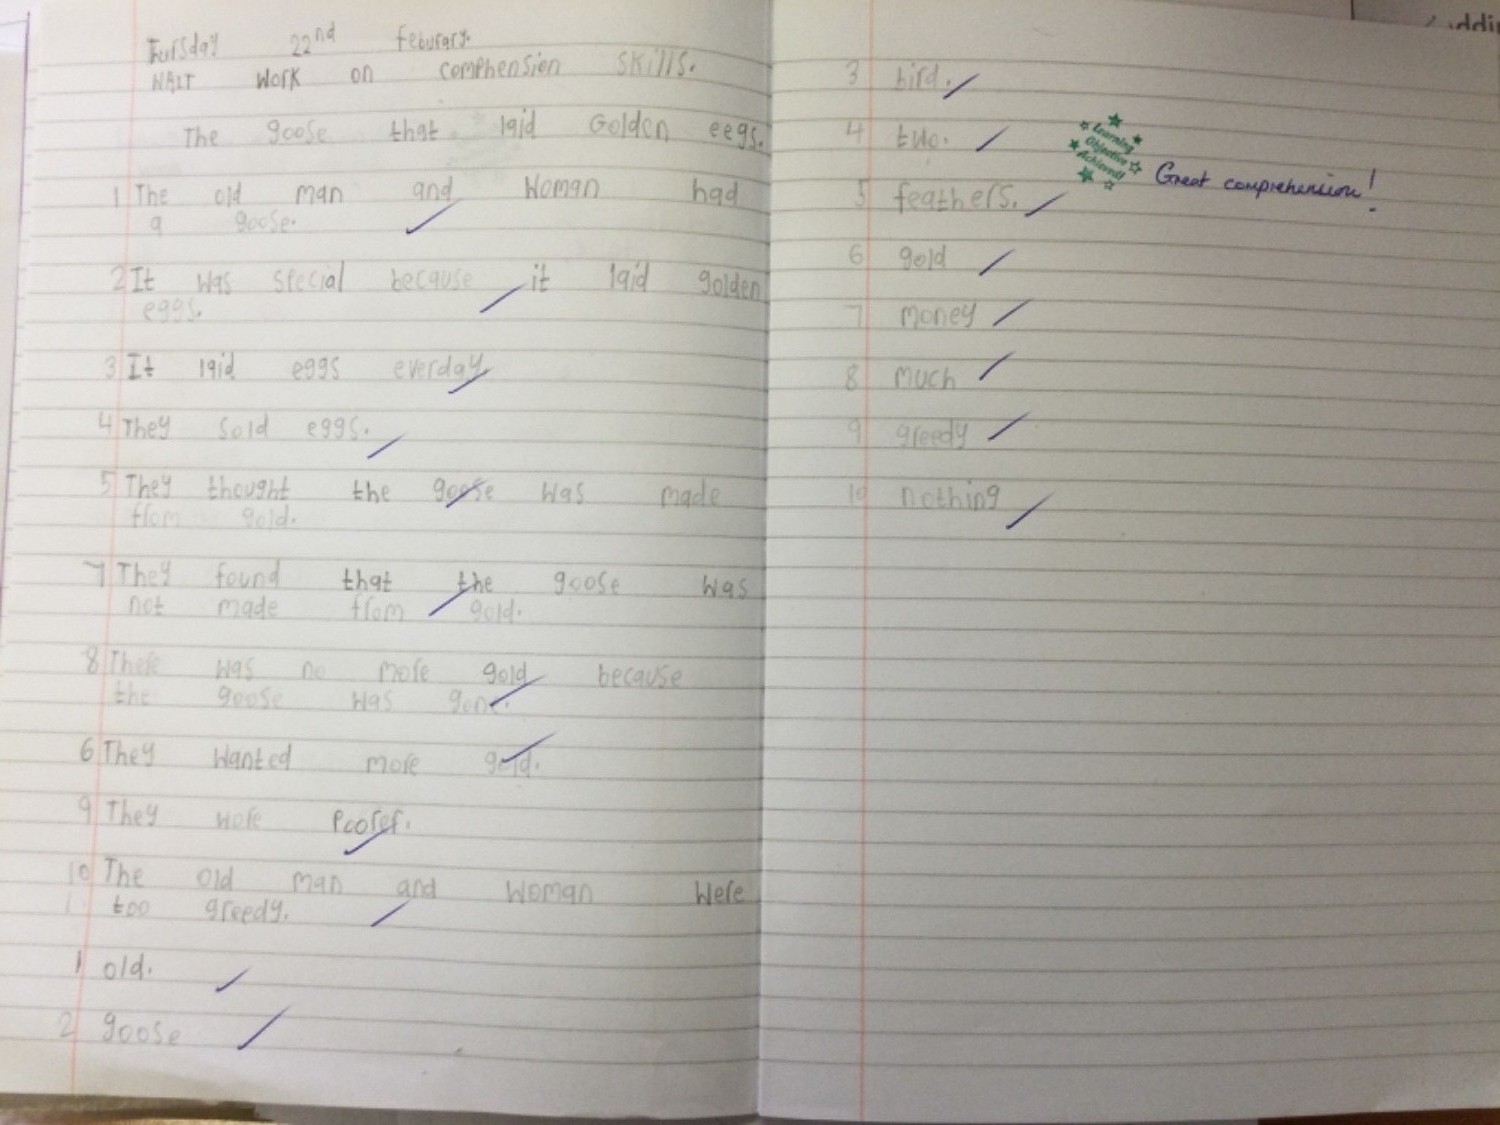 Tursday 22nd feburary.
WALT work on comphension skills.
The goose that laid Golden eegs.
1 The old man and woman had
a goose.
2 It was special because it laid golden
eggs.
3 It laid eggs everday.
4 They sold eggs.
5 They thought the goose was made
from gold.
7 They found that the goose was
not made from gold.
8 There was no more gold because
the goose was gone.
6 They wanted more gold.
9 They wore Poorer.
10 The old man and woman were
too greedy.
1 old.
2 goose
3 bird.
4 two.
Learning
Objective
Achieved!
Great comprehension!
5 feathers.
6 gold
7 money
8 much
9 greedy
10 nothing